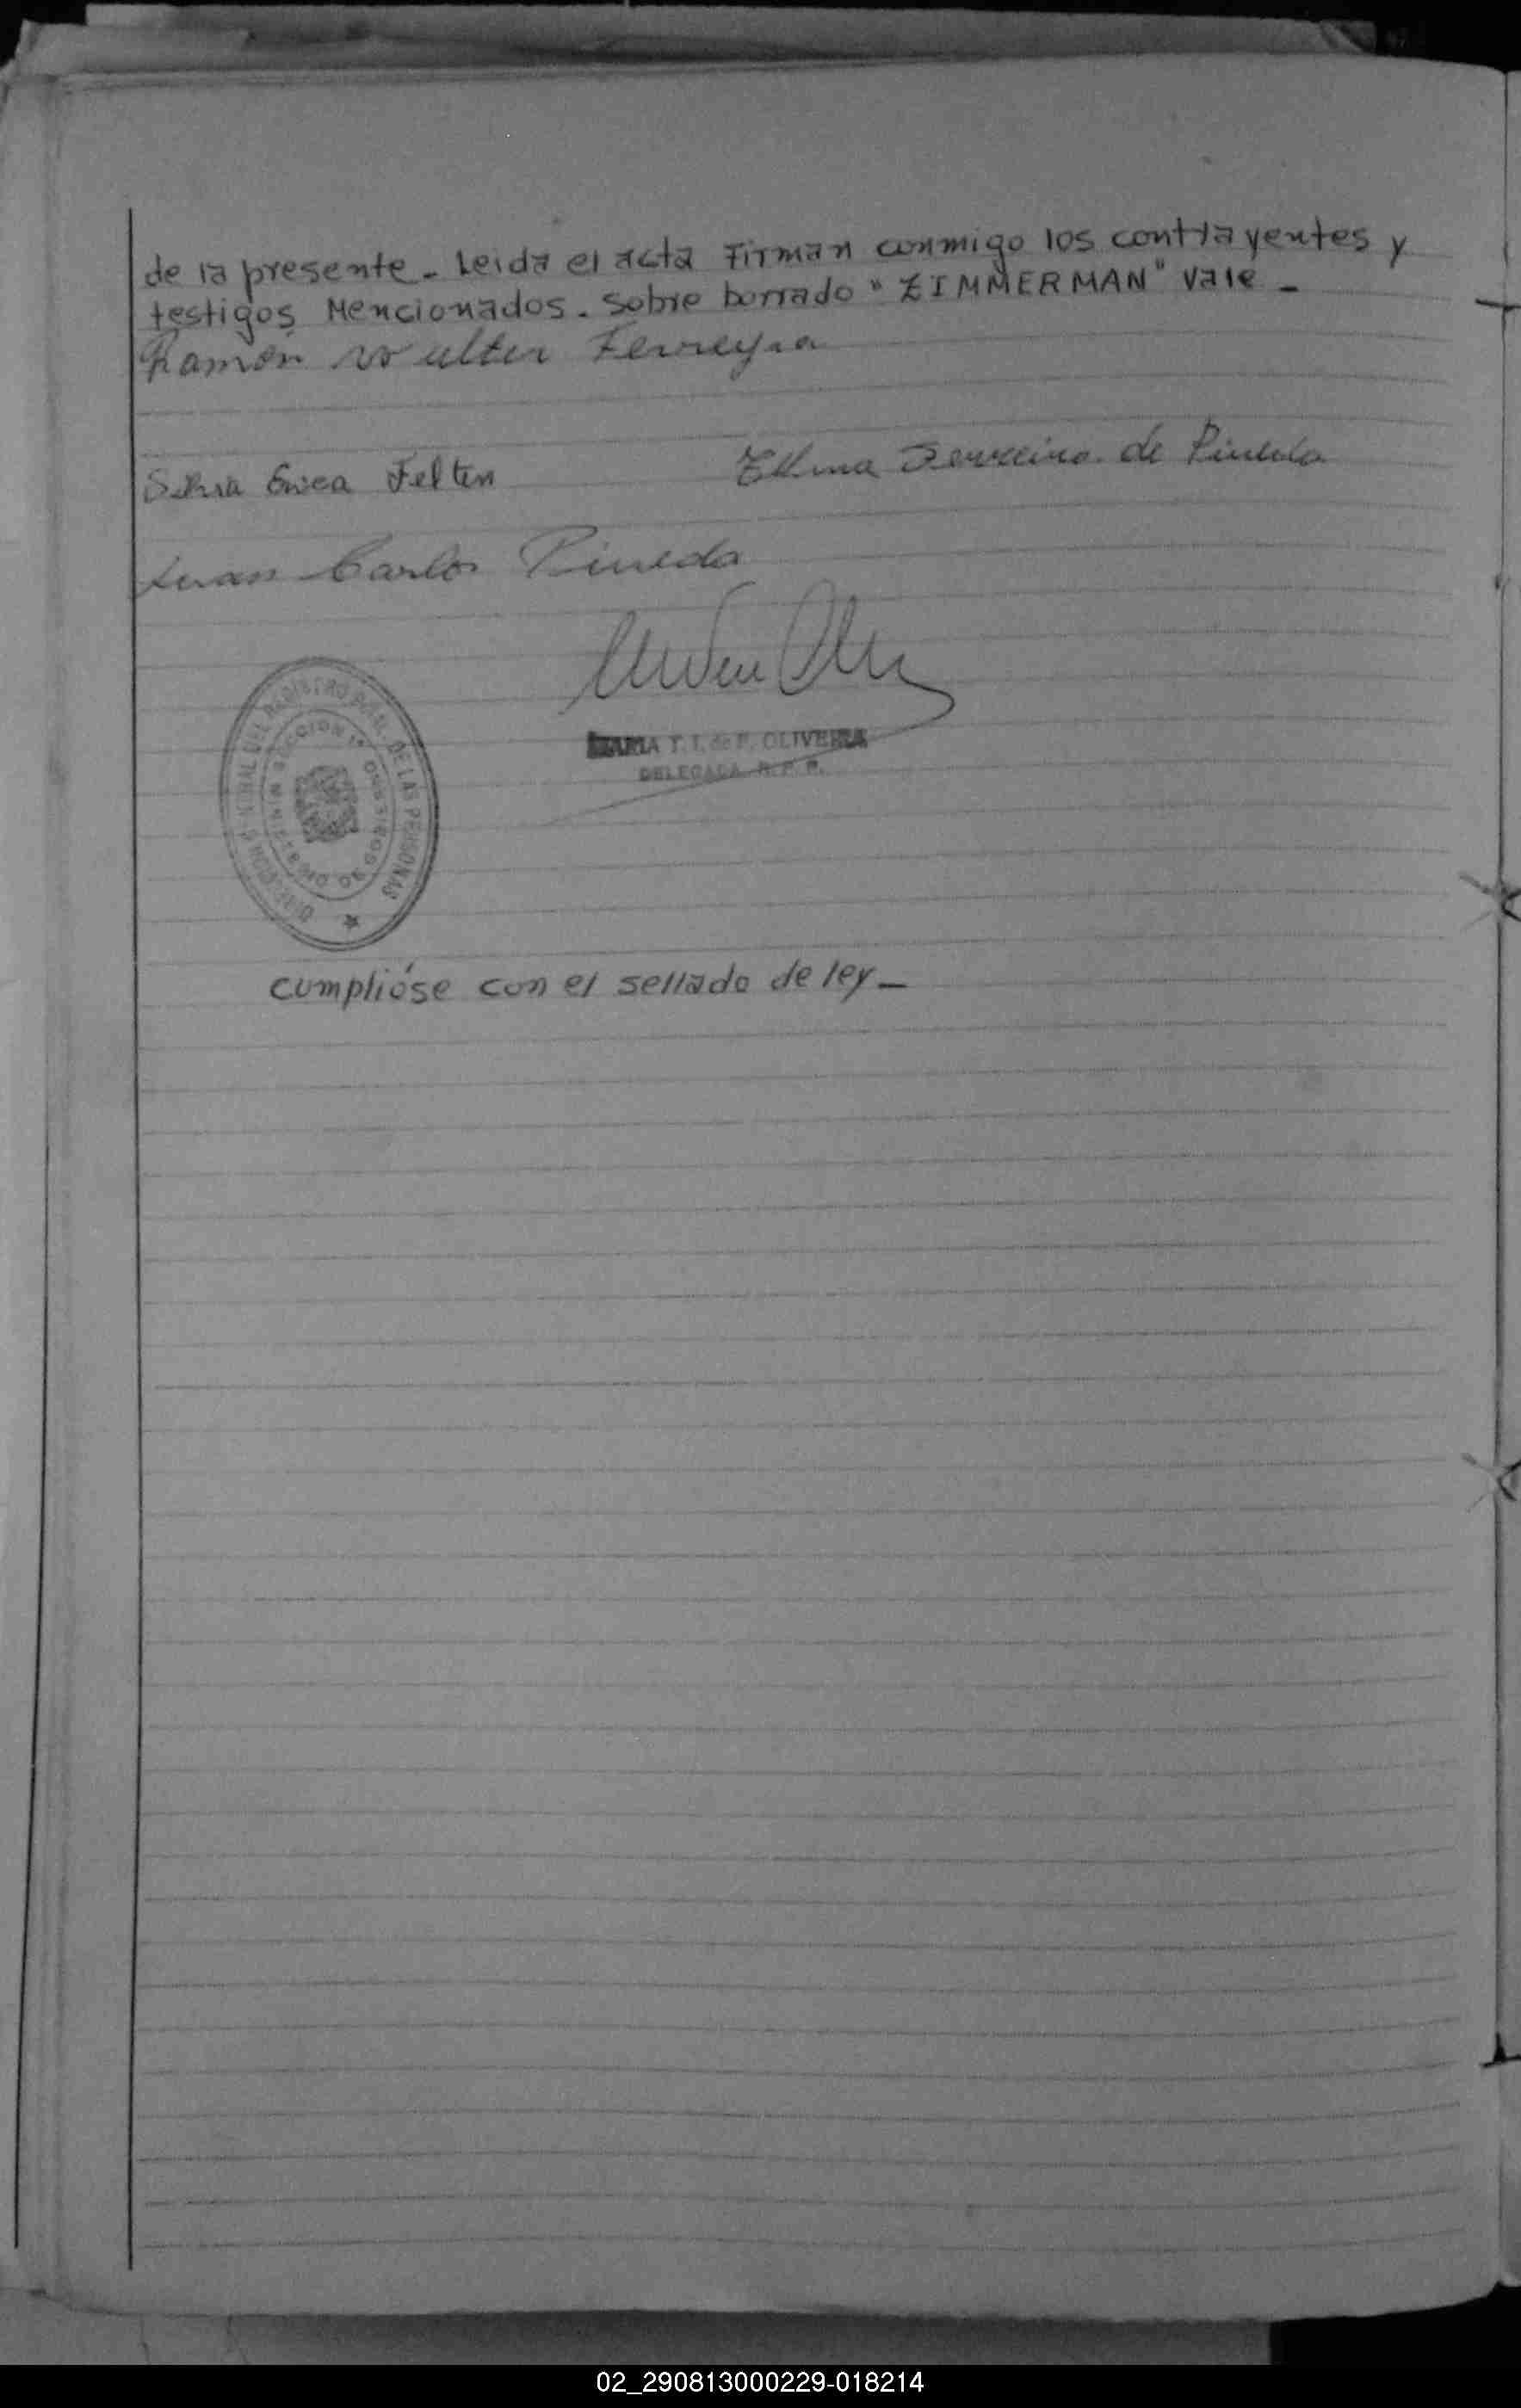 de la presente - Leida el acta Firman conmigo los contrayentes y
testigos Mencionados. sobre borrado "ZIMMERMAN" Vale -
Ramón Walter Ferreyra
Silvia Erica Felten
Ferreira de Pineda
Juan Carlos Pineda
MARIA T. I. de F. OLIVEIRA
DELEGADA R. P. P.
DIRECCION GENERAL DEL REGISTRO PCIAL. DE LAS PERSONAS
MINISTERIO DE GOBIERNO SECCION 1ª
cumplióse con el sellado de ley -
02_290813000229-018214